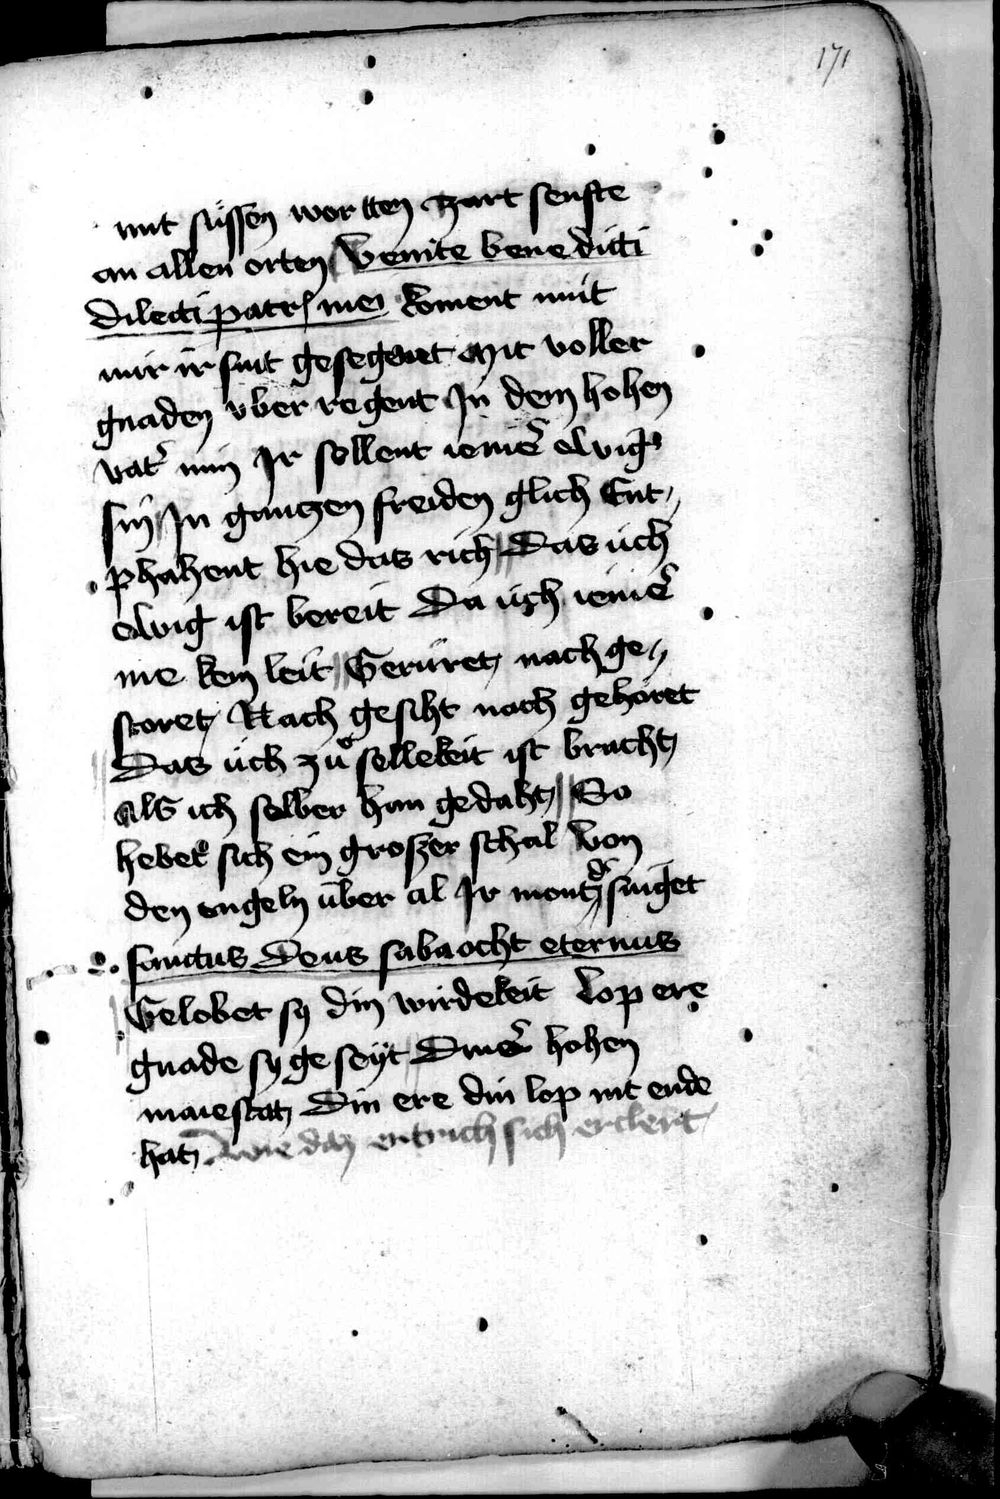 171
mit süssen wortten zart senfte
an allen orten Venite benedicti
dilecti patris mei koment mit
mir ir sint gesegenet Mit voller
gnaden vber regent In dem hohen
vatˀ min Ir sollent iemeˀ ewigˀ
sin In gantzen freiden glich Ent⸗
phahent hie das rich Das üch
ewig ist bereit Da üch iemeˀ
me kein leit Gerüret nach ge⸗
storet Nach gesiht noch gehöret
Das üch zuͦ sellekeit ist bracht
als ich selber han gedaht So
hebet sich ein groszer schal Von
den engeln über al Ir singet
sanctus Deus sabaocht eternus
Gelobet sy din wirdekeit Lop ere
gnade sy geseyt Dineˀ hohen
maiestat Din ere din lop nit ende
hat wie daz ertrich sich erclert